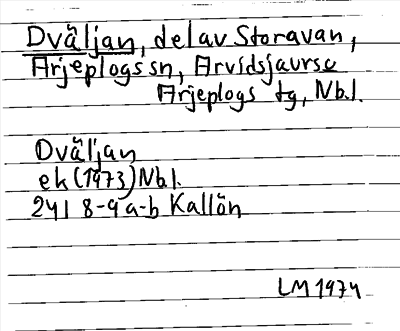 Dväljan, del av Storavan,
Arjeplogs sn, Arvidsjaurs o
Arjeplogs tg, Nbl.
Dväljan
ek (1973) Nbl.
24I 8-9 a-b Kallön
LM 1974